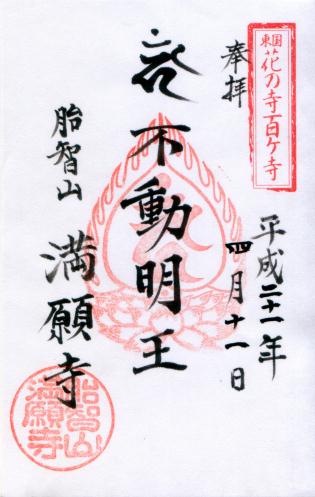 東国花の寺百ケ寺
奉拝
平成二十一年
四月十一日
不動明王
胎智山
満願寺
胎智山
満願寺